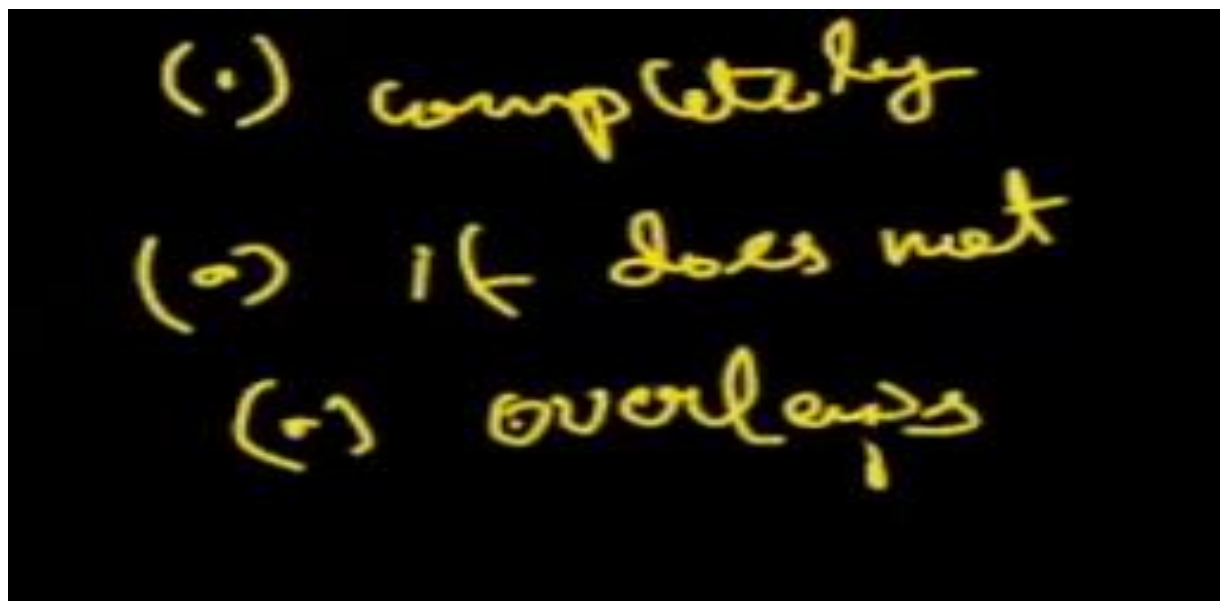 (.) completely
(.) if does not
(.) overlaps